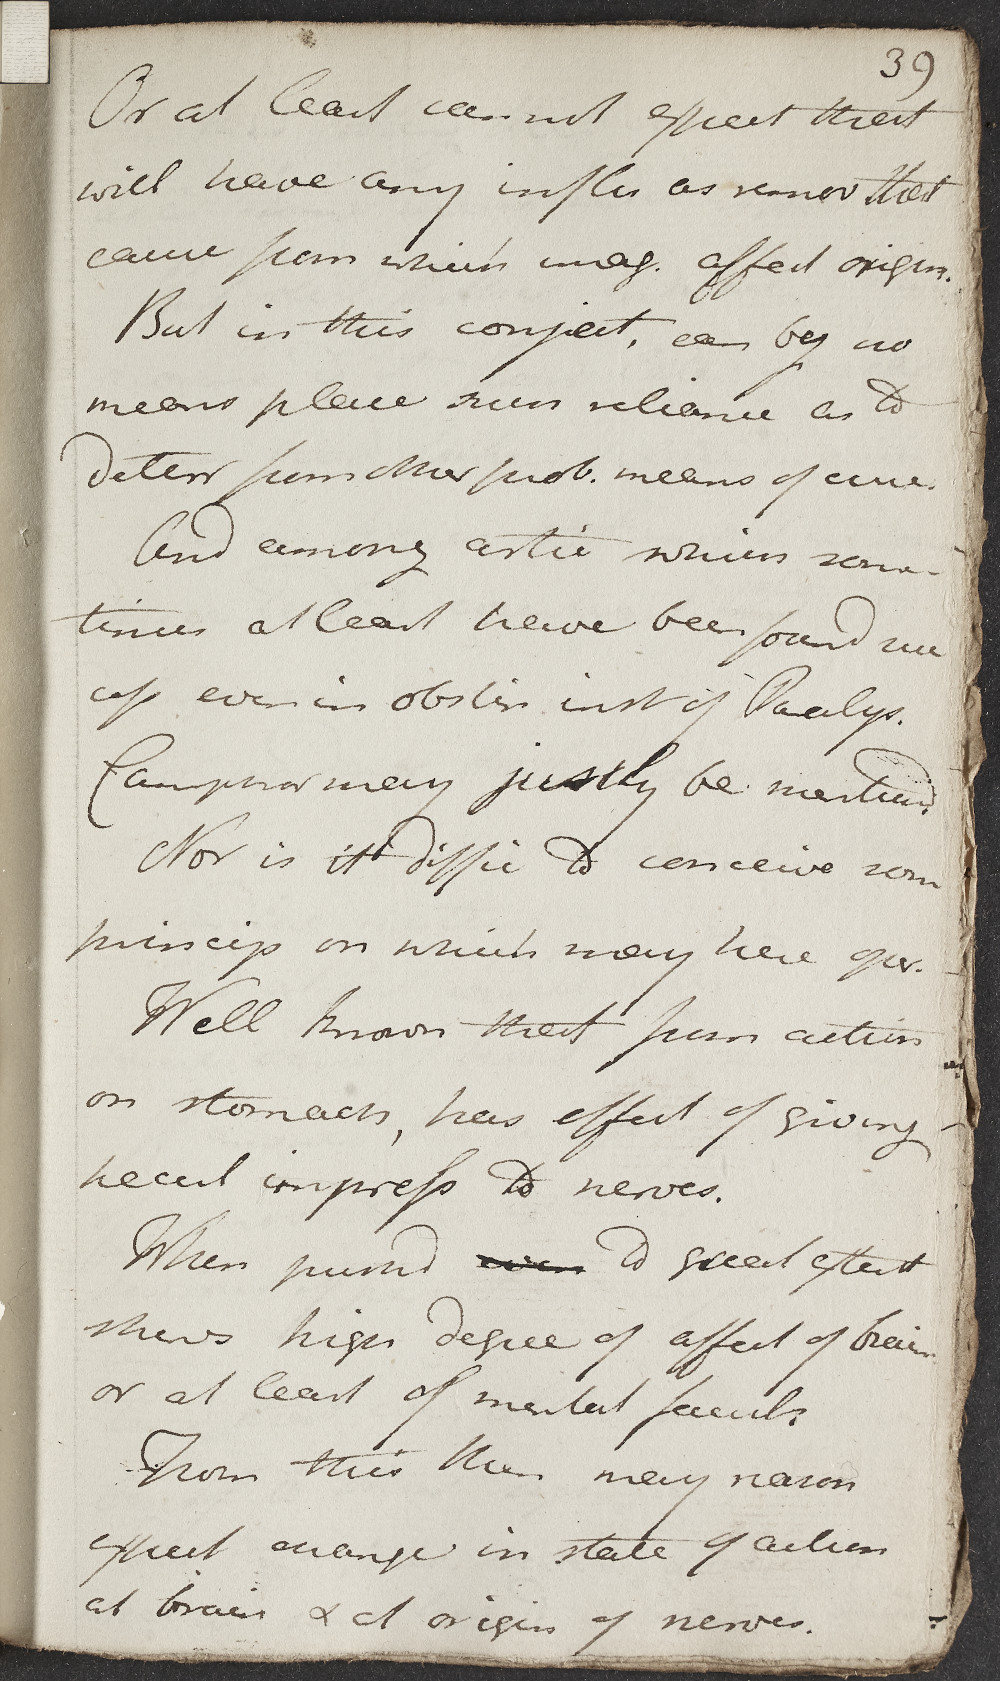 39
Or at least cannot expect that
will have any influ as remov that
cause from which imag. affect origin.
But in this conject. can by no
means place such reliance as to
deterr from other prob. means of cure.
And among artic which some-
times at least have been found suc
cess even in obstin inst of Paralys.
Camphor may justly be mention'd
Nor is it diffic to conceive som
princip on which may here oper.
Well known that from action
on stomach, has effect of giving
pecul impress to nerves.
When push'd even to great extent
shews high degree of affect of brain
or at least of mental facult.
From this then may reason
expect change in state of action
at brain & at origin of nerves.